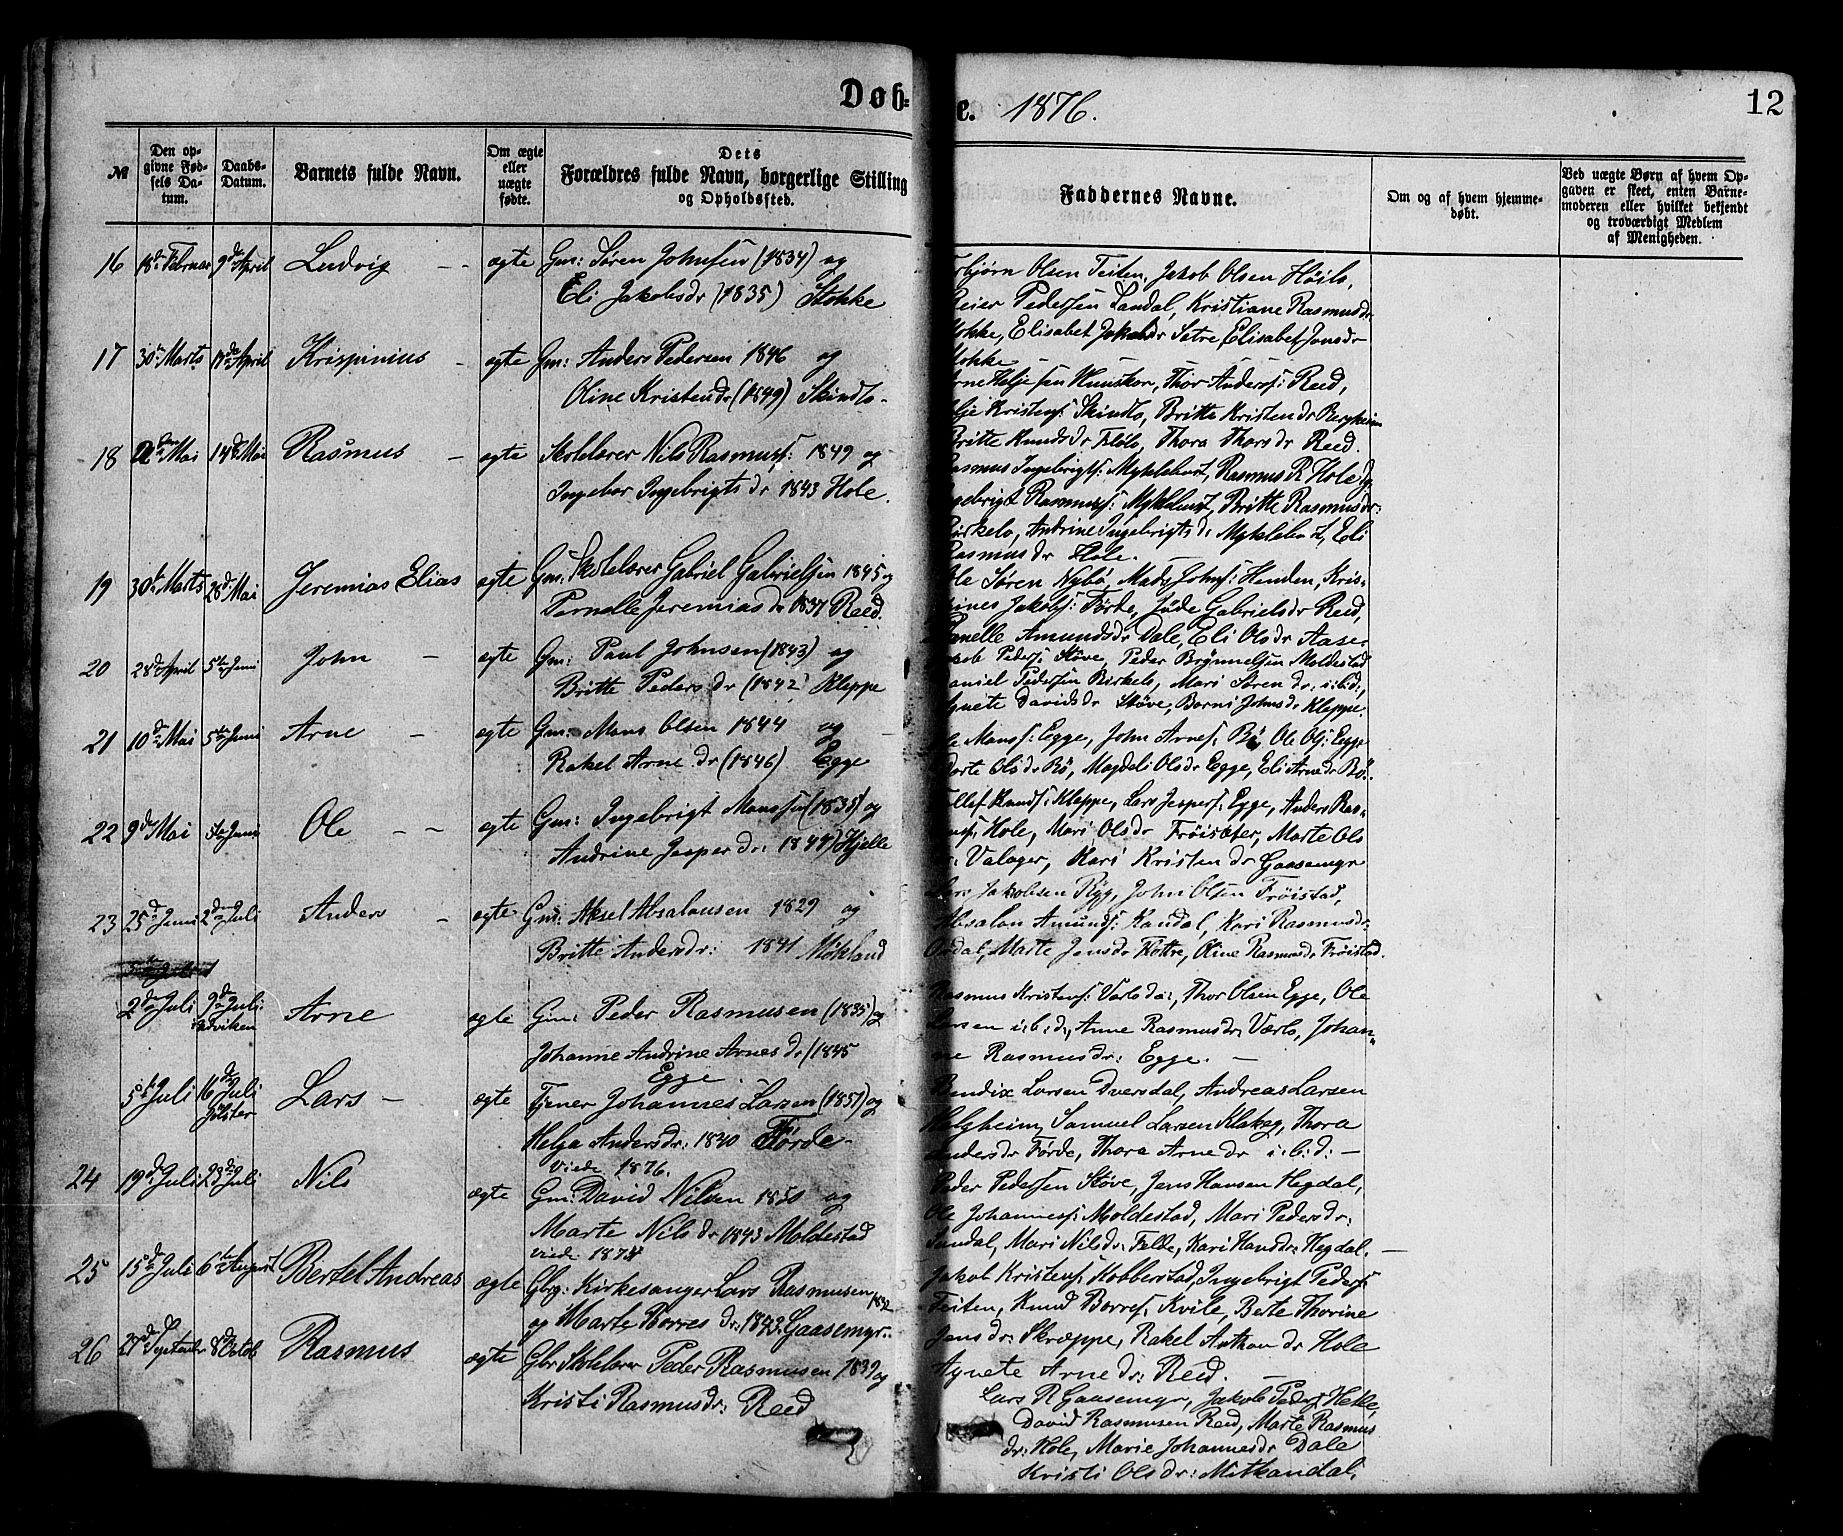 Døb=
e. 1876.
12
№
Den op-
givne Fød-
sels Da-
tum.
Daabs-
Datum.
Barnets fulde Navn.
Om ægte
eller
uægte
fødte.
Dets
Forældres fulde Navn, borgerlige Stilling
og Opholdssted.
Faddernes Navne.
Om og af hvem hjemme-
døbt.
Ved uægte Børn af hvem Op-
gaven er skeet, enten Barne-
moderen eller hvilket bekjendt
og troværdigt Medlem
af Menigheden.
16 18de Februar 9de April Ludvig - - ægte Gm: Søren Johnsen (1834) og
Eli Jakobsdr (1835) Stokke
Olsen Teiten, Jakob Olsen Høilo,
Reier Pedersen Sandal, Kristiane Rasmusdr
Stokke, Elisabet Jakobdr Sætre Elisabet Jonsdr
Stokke
17 30te Marts 17de April Krispinius - ægte Gm: Anders Pedersen 1846 og
Oline Kristendr (1849) Skindlo-
Arne Heljesen Hunskor, Thor Anders: Reed,
Kristens: Skindlo, Britte Kristendr Bergheim
Britte Knudsdr Fløto, Thora Thorsdr Reed.
18 2den Mai 14de Mai Rasmus - ægte Skolelærer Nils Rasmus: 1849 og
Ingebor Ingebrigtsdr 1843 Hole.
Rasmus Ingebrigts: Myklebust, Rasmus R. Hole
Ingebrigt Rasmuss: Myklebust, Britte Rasmusdr:
Birkelo, Andrine Ingebrigtsdr Myklebust, Eli
Rasmusdr Hole.
19 30te Marts 28de Mai Jeremias Elias ægte Gm: Skolelærer Gabriel Gabrielsen 1845 og
Pernelle Jeremiasdr 1837 Reed.
Ole Søren Nybø, Mads Johns: Henden, Kris-
Jakobs: Førde, Jude Gabrielsdr Reed,
Amundsdr Dale, Eli Olsdr Aase.
20 28de April 5te Juni John - ægte Gm: Paul Johnsen (1843) og
Britte Pedersdr (1842) Kleppe
Jakob Peders: Støve, Peder Moldestad
Daniel Pedersen Birkelo, Mari Sørendr: i.b.d:,
Agnete Davidsdr Støve, Borni Johnsdr Kleppe.
21 10de Mai 5te Juni Arne - ægte Gm: Mons Olsen 1844 og
Rakel Arnedr (1846) Egge
Ole Mons: Egge, John Arnes: Bø, Ole Ols: Egge
Olsdr Bø, Magdeli Olsdr Egge, Eli Arnedr Bø.
22 9de Mai 5te Juni Ole - - ægte Gm: Ingebrigt Monssen (1835) og
Andrine Jesperdr: 1844) Hjelle
Knuds: Kleppe, Lars Jespers: Egge, Anders Ras-
muss: Hole, Mari Olsdr Frøisæter, Marte Ols
dr: Valager, Kari Kristendr Gaasemyr
23 25de Juni 2de Juli Anders - ægte Gm: Aksel Absalonsen 1829 og
Britte Andersdr: 1841 Møkland
Lars Jakobsen Ryg, John Olsen Frøistad,
Absalon Amunds: Kandal, Kari Rasmusdr:
Ordal, Marte Jonsdr Flottre, Oline Rasmusdr Frøistad.
2de Juli 9de Juli Arne ægte Gm: Peder Rasmusen (1835) og
Johanne Andrine Arnesdr (1845
Egge
Rasmus Kristens: Thor Olsen Egge, Ole
Larsen i:b:d:, Anne Rasmusdr: Værlo, Johan-
ne Rasmusdr: Egge. -
5te Juli 16de Juli Jølster Lars - ægte Tjener Johannes Larsen (1851) og
Helga Andersdr: 1840 Førde -
Viede 1876.
Bendix Larsen Dversdal, Andreas Larsen
Helgheim, Samuel Larsen Klakeg, Thora
Andersdr Førde, Thora Arnedr i:b:d: -
24 19de Juli 23de Juli Nils ægte Gm: David Nilsen 1850 og
Marte Nilsdr 1843 Moldestad
Viede 1874
Peder Pedersen Støve, Jens Hansen Hegdal,
Ole Johanness: Moldestad, Mari Pedersdr:
Sandal, Mari Nilsdr: Felde, Kari Hansdr: Hegdal. -
25 15de Juli 6te August Bertel Andreas ægte Gbr: Kirkesanger Lars Rasmusen 1842
og Marte Borresdr: 1843. Gaasemyr.
Jakob Kristens: Kobberstad, Ingebrigt Peders:
Teiten, Knud Borres: Kvile, Berte Thorine
Jensdr: Skræppe, Rakel Anthondr Hole
Agnete Arnedr: Reed. -
26 27de September 8de Octob Rasmus ægte Gbr: Skolelærer Peder Rasmusen 1839 og
Kristi Rasmusdr: Reed
Lars R Gaasemyr, Jakob Peders: Hetle,
David Rasmusen Reed, Marte Rasmus
dr: Hole, Marie Johannesdr Dale
Kristi Olsdr: Mitkandal.